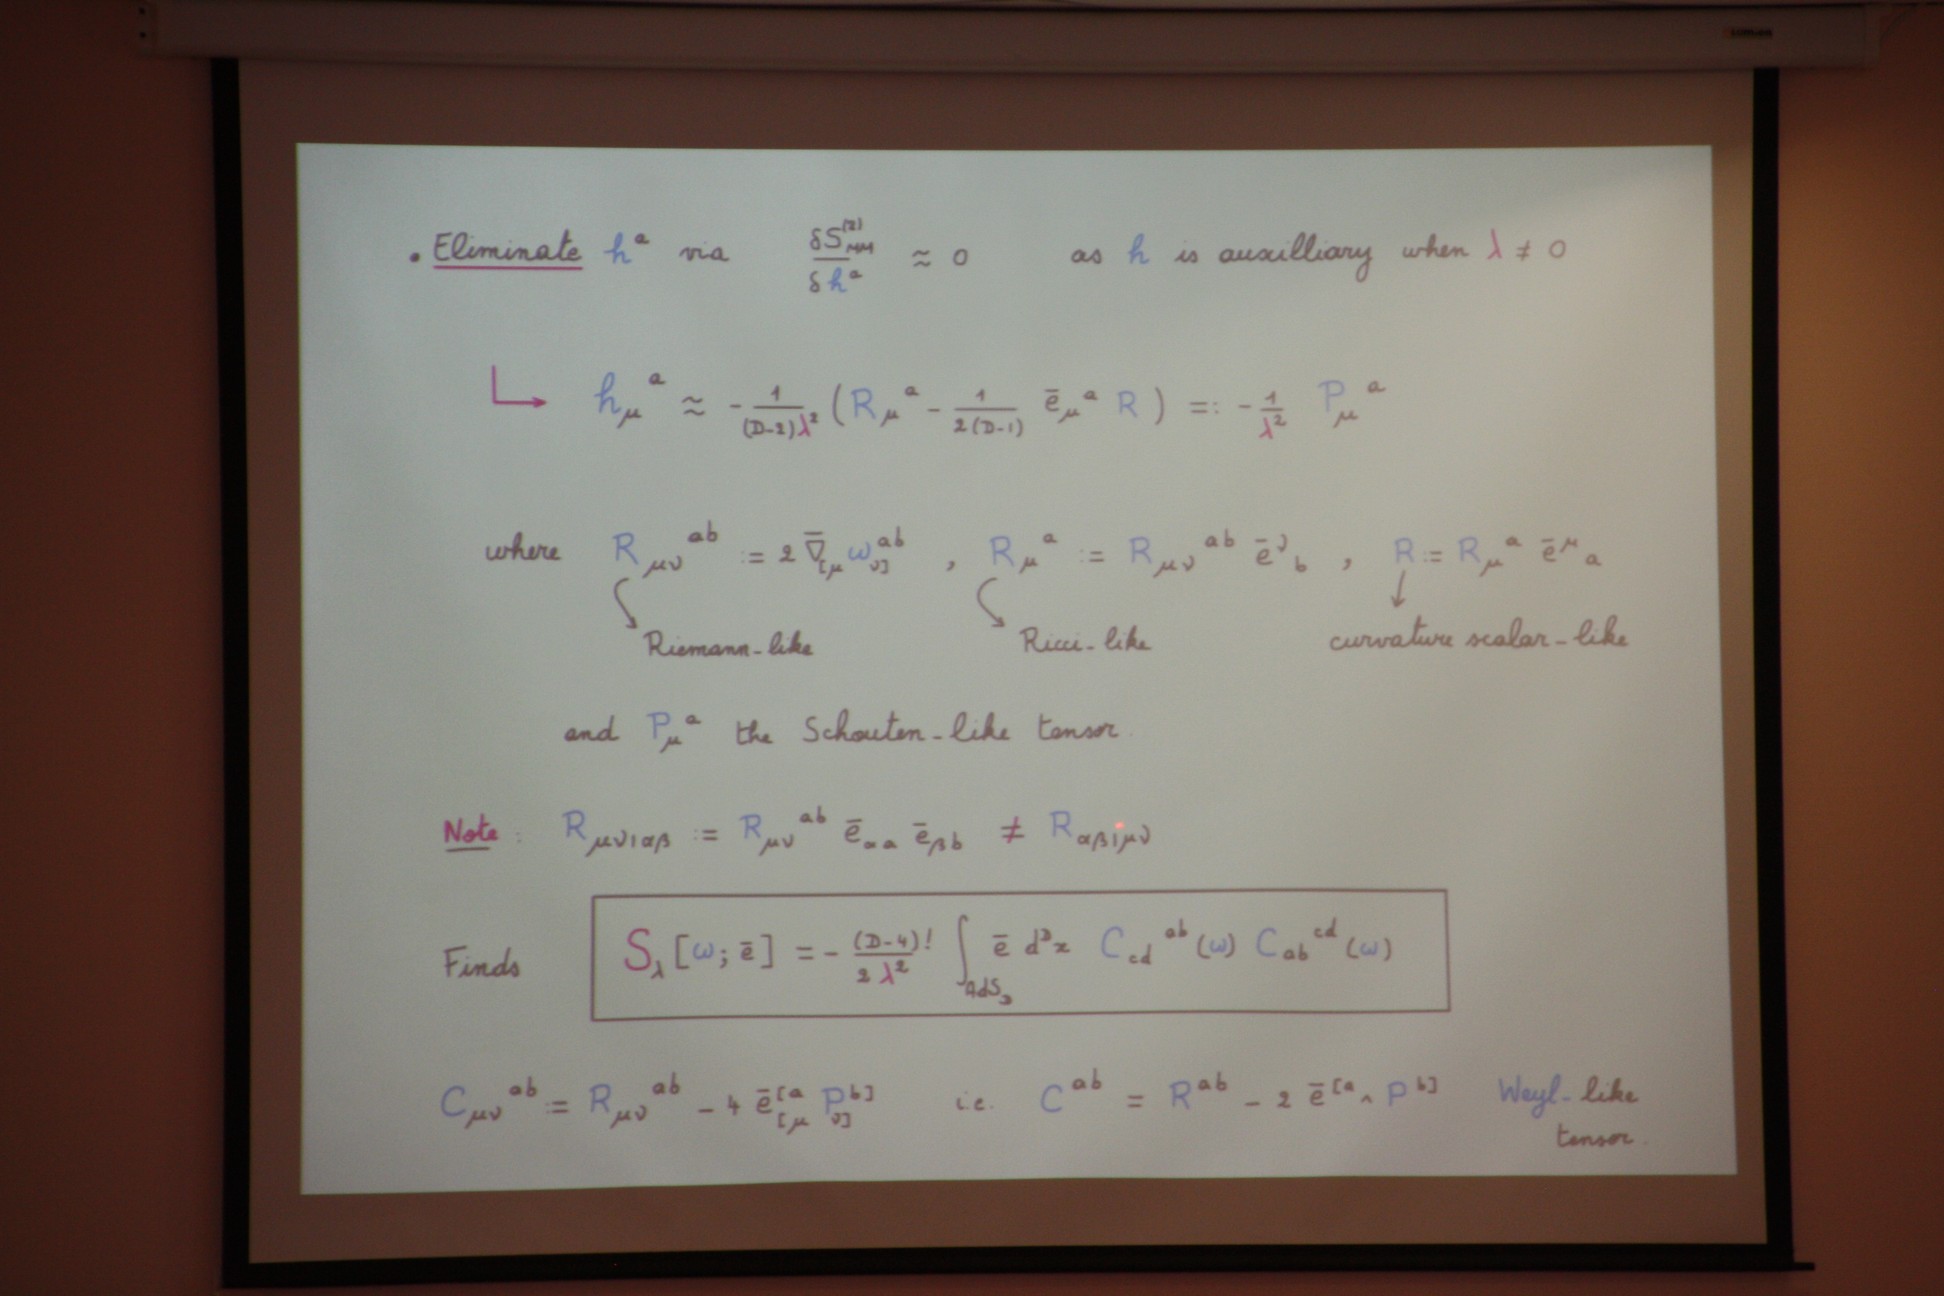 • Eliminate hᵃ via δS⁽²⁾_MM / δhᵃ ≈ 0 as h is auxilliary when λ ≠ 0
h_μ^a ≈ - 1/((D-2)λ²) ( R_μ^a - 1/(2(D-1)) ē_μ^a R ) =: - 1/λ² P_μ^a
where R_μν^ab := 2 ∇̄_[μ ω_ν]^ab , R_μ^a := R_μν^ab ē^ν_b , R := R_μ^a ē^μ_a
Riemann-like Ricci-like curvature scalar-like
and P_μ^a the Schouten-like tensor.
Note : R_μν|αβ := R_μν^ab ē_αa ē_βb ≠ R_αβ|μν
Finds S_λ [ω; ē] = - (D-4)!/(2 λ²) ∫_AdS_D ē d^D x C_cd^ab (ω) C_ab^cd (ω)
C_μν^ab := R_μν^ab - 4 ē_[μ^[a P_ν]^b] i.e. C^ab = R^ab - 2 ē^[a ∧ P^b] Weyl-like
tensor.